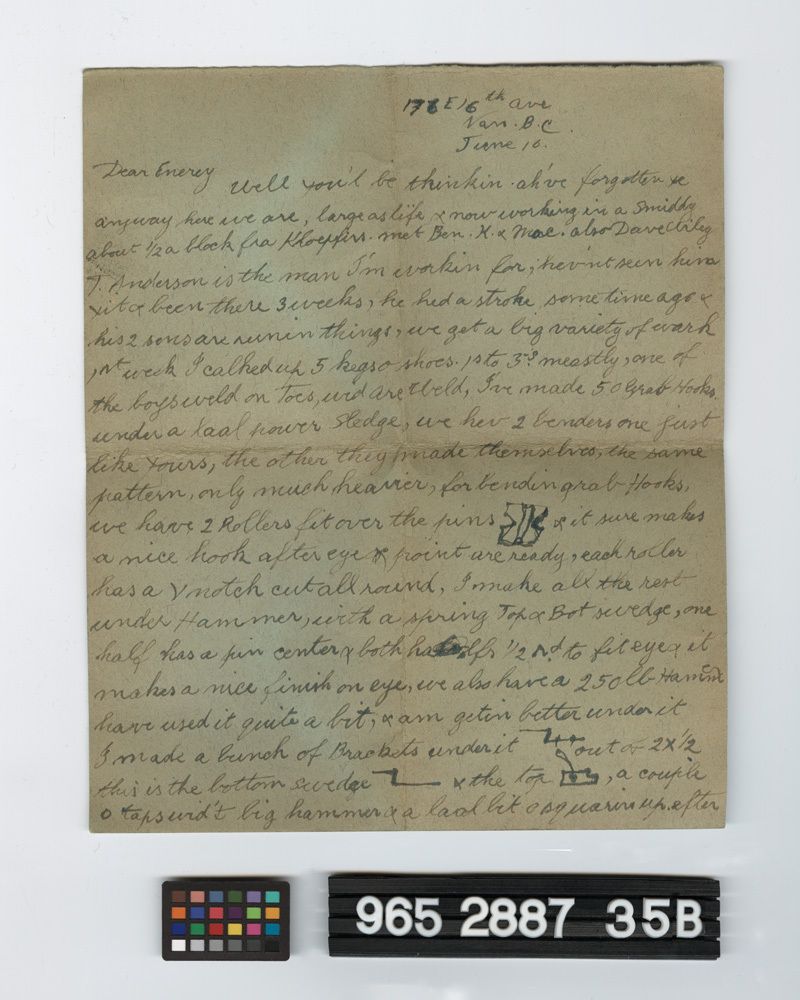 E 16th Ave
Van. B.C.
June 10.
Dear Enerey
Well you'l be thinkin ah've forgotten ye
anyway here we are, large as life & now working in a Smiddy
about 1/2 a block fra Kloepfirs. met Ben. K. & Mac. also Dave Wiley
J. Anderson is the man I'm workin for, hev'nt seen him
yit & been there 3 weeks, he hed a stroke some time ago &
his 2 sons are runin things, we get a big variety of wark
1st week I calked up 5 kegs o shoes. 1s to 3s meastly, one of
the boys weld on Toes, wid Arc Weld, I've made 50 Grab Hooks.
under a laal power Sledge, we hev 2 benders one just
like yours, the other they made themselves, the same
pattern, only much heavier, for bendin grab Hooks,
we have 2 Rollers fit over the pins & it sure makes
a nice hook after eye & point are ready, each roller
has a V notch cut all round, I make all the rest
under Hammer, with a spring Top & Bot swedge, one
half has a pin center & both halfs 1/2 rd to fit eye & it
makes a nice finish on eye, we also have a 250 lb Hammer
have used it quite a bit, & am getin better under it
I made a bunch of Brackets under it out of 2 x 1/2
this is the bottom swedge & the top , a couple
o taps wid't big hammer & a laal bit o squarin up. efter
965 2887 35B